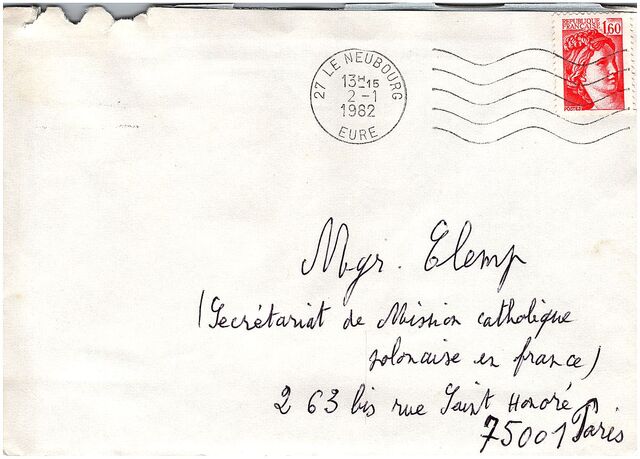 27 LE NEUBOURG
13H15
2-1
1982
EURE
REPUBLIQUE
FRANCAISE
1,60
POSTES
Mgr. Glemp
(Secrétariat de Mission catholique
polonaise en france)
263 bis rue Saint Honoré
75001 Paris